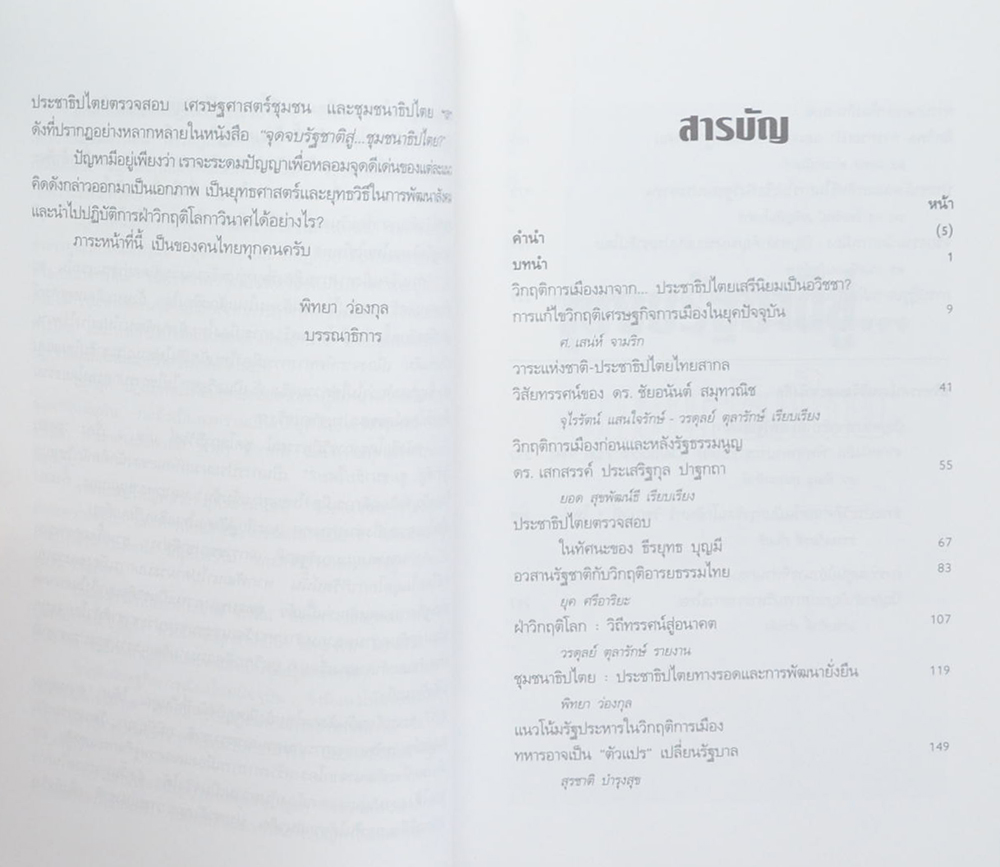 ประชาธิปไตยตรวจสอบ เศรษฐศาสตร์ชุมชน และชุมชนาธิปไตย
ดังที่ปรากฏอย่างหลากหลายในหนังสือ "จุดจบรัฐชาติสู่...ชุมชนาธิปไตย?"
ปัญหามีอยู่เพียงว่า เราจะระดมปัญญาเพื่อหลอมจุดดีเด่นของแต่ละ
คิดดังกล่าวออกมาเป็นเอกภาพ เป็นยุทธศาสตร์และยุทธวิธีในการพัฒนาสังคม
และนำไปปฏิบัติการฝ่าวิกฤติโลกาวินาศได้อย่างไร?
ภาระหน้าที่นี้ เป็นของคนไทยทุกคนครับ
พิทยา ว่องกุล
บรรณาธิการ
สารบัญ
หน้า
คำนำ (5)
บทนำ 1
วิกฤติการเมืองมาจาก... ประชาธิปไตยเสรีนิยมเป็นอวิชชา?
การแก้ไขวิกฤติเศรษฐกิจการเมืองในยุคปัจจุบัน 9
ศ. เสน่ห์ จามริก
วาระแห่งชาติ-ประชาธิปไตยไทยสากล
วิสัยทรรศน์ของ ดร. ชัยอนันต์ สมุทวณิช 41
จุไรรัตน์ แสนใจรักษ์ - วรดุลย์ ตุลารักษ์ เรียบเรียง
วิกฤติการเมืองก่อนและหลังรัฐธรรมนูญ
ดร. เสกสรรค์ ประเสริฐกุล ปาฐกถา 55
ยอด สุขพัฒน์ธี เรียบเรียง
ประชาธิปไตยตรวจสอบ
ในทัศนะของ ธีรยุทธ บุญมี 67
อวสานรัฐชาติกับวิกฤติอารยธรรมไทย 83
ยุค ศรีอาริยะ
ฝ่าวิกฤติโลก : วิถีทรรศน์สู่อนาคต 107
วรดุลย์ ตุลารักษ์ รายงาน
ชุมชนาธิปไตย : ประชาธิปไตยทางรอดและการพัฒนายั่งยืน 119
พิทยา ว่องกุล
แนวโน้มรัฐประหารในวิกฤติการเมือง
ทหารอาจเป็น "ตัวแปร" เปลี่ยนรัฐบาล 149
สุรชาติ บำรุงสุข